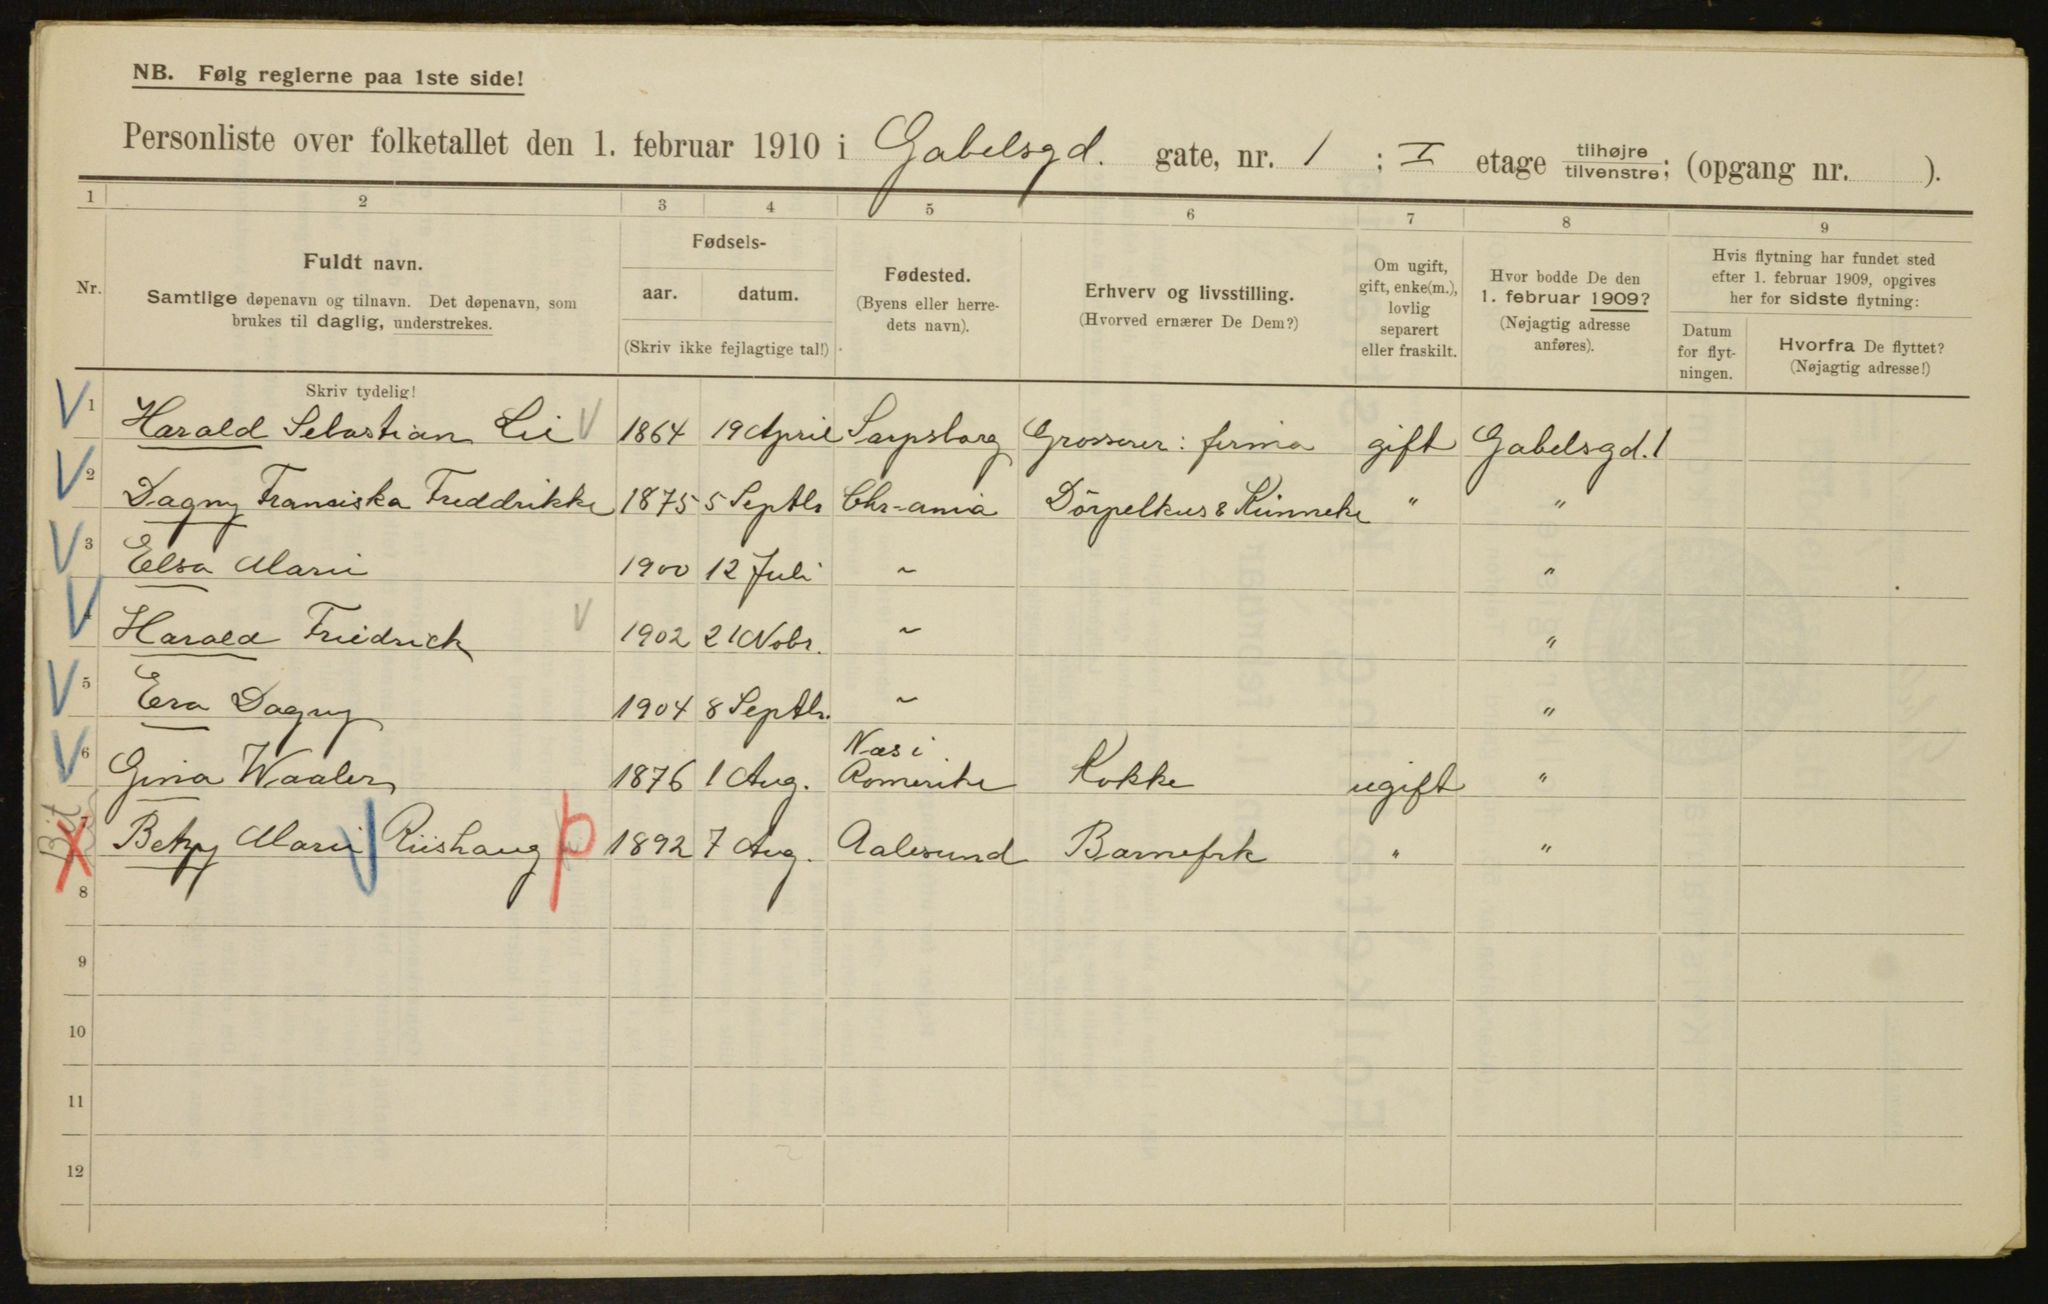 NB. Følg reglerne paa 1ste side!
Personliste over folketallet den 1. februar 1910 i Gabelsgd. gate, nr. 1 ; I etage tilhøjre/tilvenstre; (opgang nr. ).
1 2 3 4 5 6 7 8 9
Nr.
Fuldt navn.
Samtlige døpenavn og tilnavn. Det døpenavn, som
brukes til daglig, understrekes.
Fødsels-
aar. datum.
(Skriv ikke fejlagtige tal!)
Fødested.
(Byens eller herre-
dets navn).
Erhverv og livsstilling.
(Hvorved ernærer De Dem?)
Om ugift,
gift, enke(m.),
lovlig
separert
eller fraskilt.
Hvor bodde De den
1. februar 1909?
(Nøjagtig adresse
anføres).
Hvis flytning har fundet sted
efter 1. februar 1909, opgives
her for sidste flytning:
Datum
for flyt-
ningen.
Hvorfra De flyttet?
(Nøjagtig adresse!)
Skriv tydelig!
1 Harald Sebastian Lie 1864 19 April Sarpsborg Grosserer: firma gift Gabelsgd. 1
2 Dagny Franciska Freddrikke 1875 5 Septbr Chr-ania Dörpelkus & Künneke " "
3 Elsa Marie 1900 12 Juli ~ "
4 Harald Friedrick 1902 21 Nobr. ~ "
5 Eva Dagny 1904 8 Septbr. ~ "
6 Gina Waaler 1876 1 Aug. Næs i Romerike Kokke ugift "
Bit
7 Betzy Marie Riishaug p 1892 7 Aug. Aalesund Barnefrk " "
8
9
10
11
12